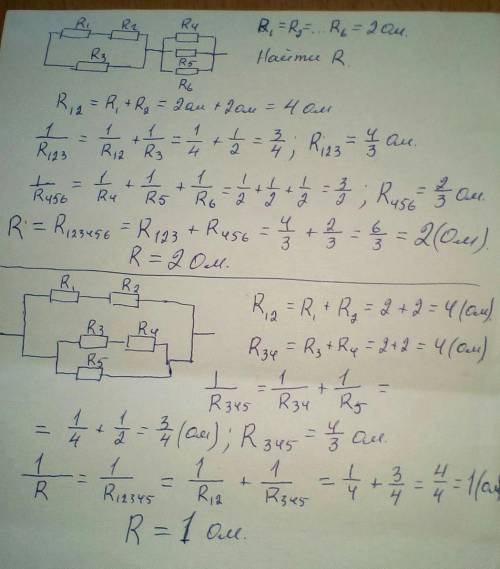 R₁ R₂ R₄ R₁ = R₂ = ... R₆ = 2 ом.
R₃ R₅ Найти R.
R₆
R₁₂ = R₁ + R₂ = 2 ом + 2 ом = 4 ом
1/R₁₂₃ = 1/R₁₂ + 1/R₃ = 1/4 + 1/2 = 3/4 ; R₁₂₃ = 4/3 ом.
1/R₄₅₆ = 1/R₄ + 1/R₅ + 1/R₆ = 1/2 + 1/2 + 1/2 = 3/2 ; R₄₅₆ = 2/3 ом.
R = R₁₂₃₄₅₆ = R₁₂₃ + R₄₅₆ = 4/3 + 2/3 = 6/3 = 2 (Ом).
R = 2 Ом.
R₁ R₂ R₁₂ = R₁ + R₂ = 2 + 2 = 4 (ом)
R₃ R₄ R₃₄ = R₃ + R₄ = 2+2 = 4 (ом)
R₅ 1/R₃₄₅ = 1/R₃₄ + 1/R₅ =
= 1/4 + 1/2 = 3/4 (ом) ; R₃₄₅ = 4/3 ом.
1/R = 1/R₁₂₃₄₅ = 1/R₁₂ + 1/R₃₄₅ = 1/4 + 3/4 = 4/4 = 1 (ом
R = 1 ом.